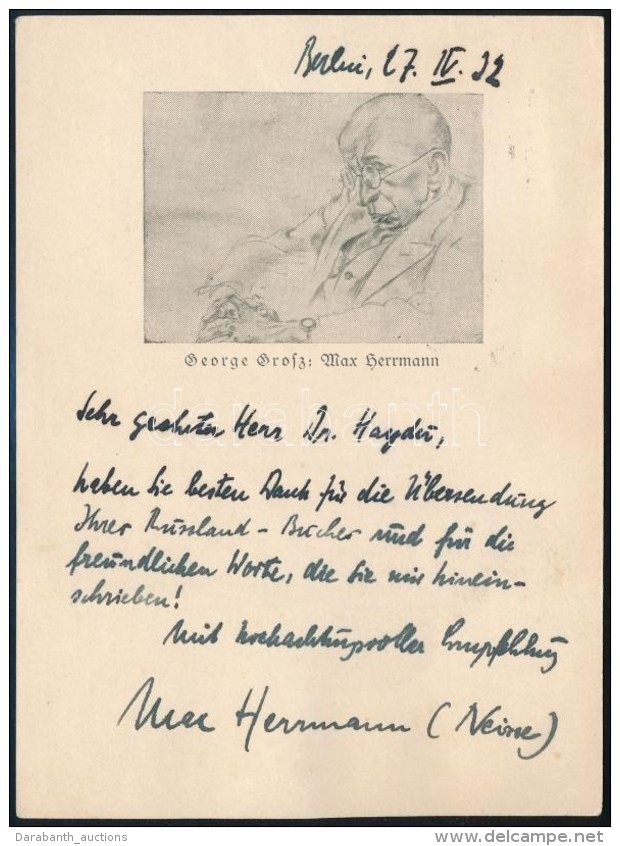 Berlin, 27. IV. 32
George Grosz: Max Herrmann
Sehr geehrter Herr Dr. Haydu,
haben Sie besten Dank für die Übersendung
Ihrer Russland-Bücher und für die
freundlichen Worte, die Sie mir hinein-
schrieben!
Mit hochachtungsvoller Empfehlung
Max Herrmann (Neisse)
darabanth
Darabanth_auctions
delcampe.net